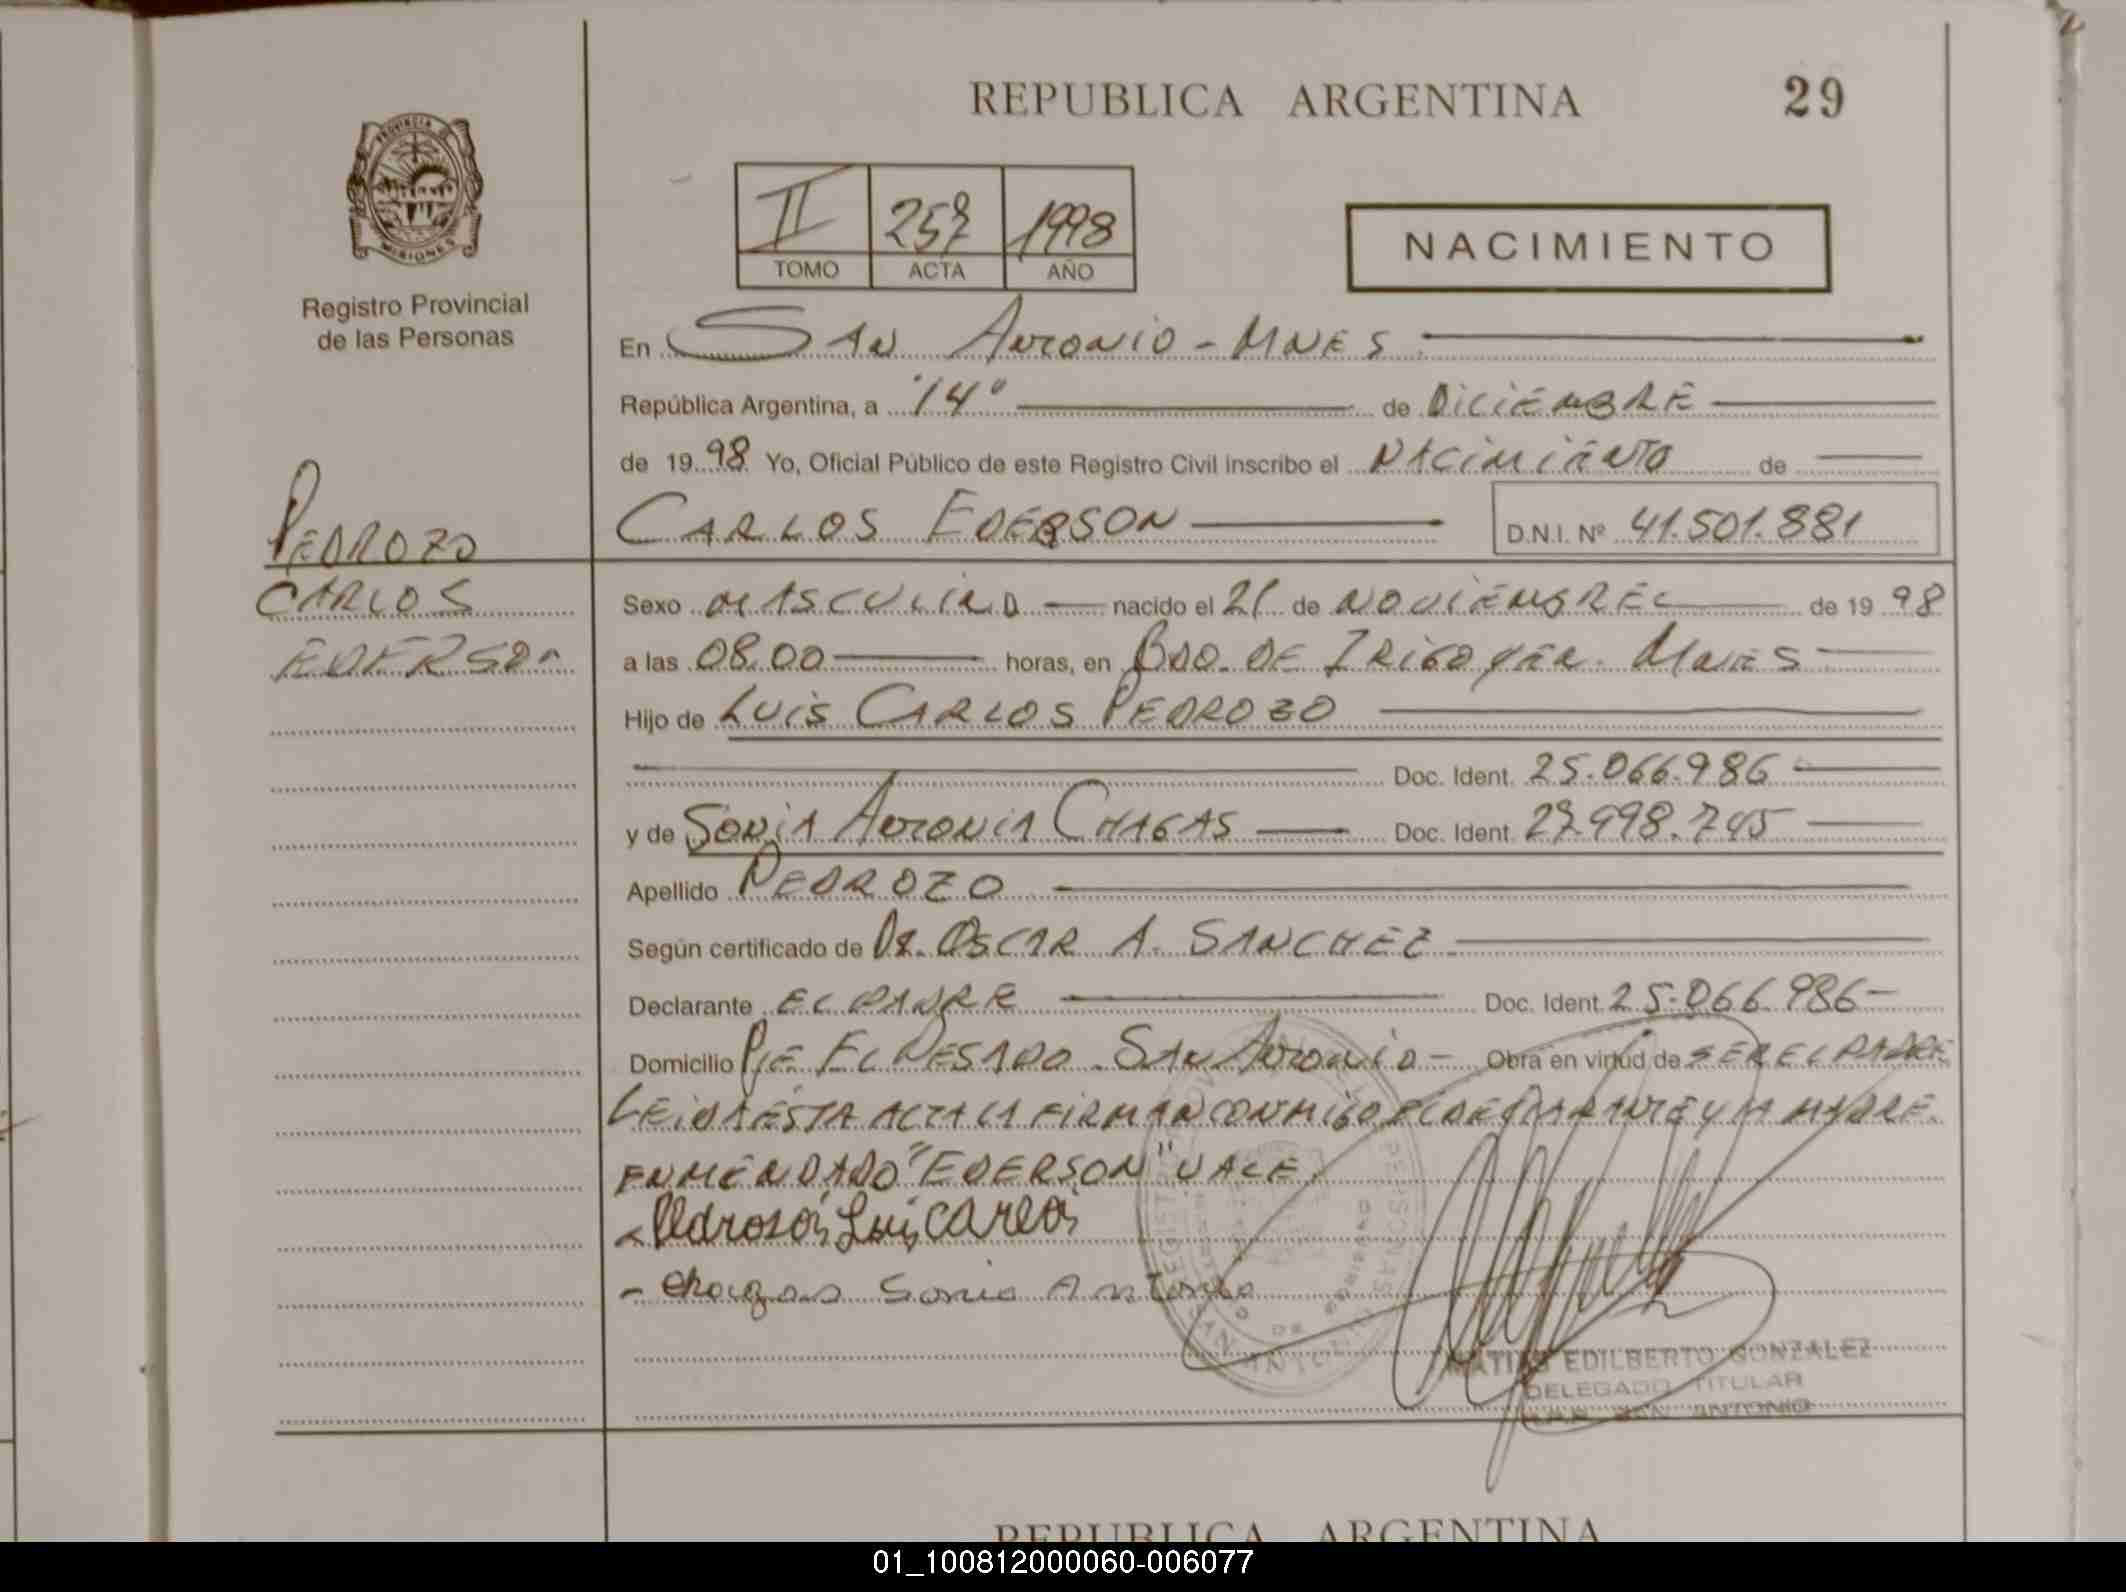 REPUBLICA ARGENTINA
29
PROVINCIA DE
MISIONES
Registro Provincial
de las Personas
II 257 1998
TOMO ACTA AÑO
NACIMIENTO
En SAN ANTONIO - MNES
República Argentina, a "14" de DICIEMBRE
de 1998 Yo, Oficial Público de este Registro Civil inscribo el NACIMIENTO de
CARLOS EDERSON D.N.I. Nº 41.501.881
PEDROZO
CARLOS
EDERSON
Sexo MASCULINO nacido el 21 de NOVIEMBRE de 1998
a las 08.00 horas, en BDO. DE IRIGOYEN. MNES
Hijo de LUIS CARLOS PEDROZO
Doc. Ident. 25.066.986
y de SONIA ANTONIA CHAGAS Doc. Ident. 27.998.745
Apellido PEDROZO
Según certificado de DR. OSCAR A. SANCHEZ
Declarante EL PADRE Doc. Ident. 25.066.986-
Domicilio PJE EL PESADO - SAN ANTONIO - Obra en virtud de SER EL PADRE
LEIDA ESTA ACTA LA FIRMAN CONMIGO EL DECLARANTE Y LA MADRE.
ENMENDADO "EDERSON" VALE.
Pedroso Luis Carlos
- Chagas Sonia Antonia
MATIAS EDILBERTO GONZALEZ
DELEGADO TITULAR
SAN ANTONIO
REPUBLICA ARGENTINA
01_100812000060-006077